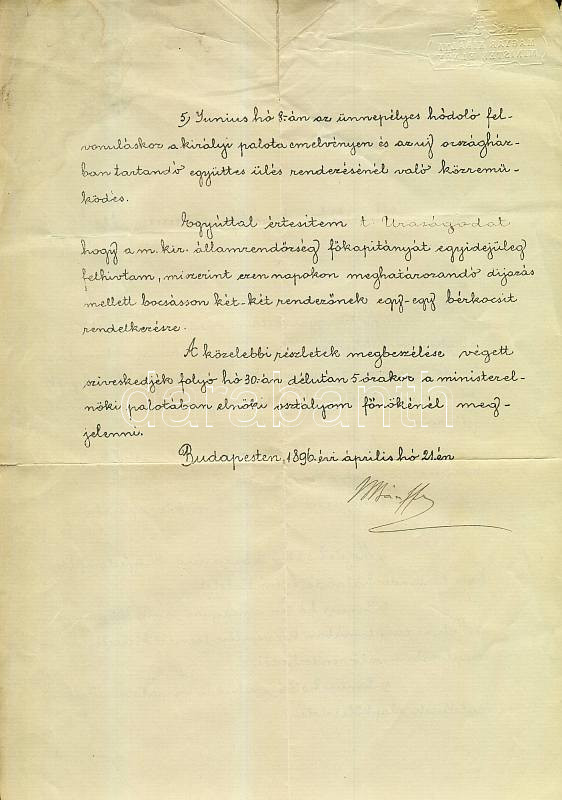 5, Junius hó 8.-án az ünnepélyes hódoló fel-
vonuláskor a királyi palota emelvényen és az uj országház-
ban tartandó együttes ülés rendezésénél való közremü-
ködés.
Egyúttal értesitem t. Uraságodat
hogy a m. kir. államrendőrség főkapitányát egyidejüleg
felhivtam, miszerint ezen napokon meghatározandó dijazás
mellett bocsásson két-két rendezőnek egy-egy bérkocsit
rendelkezésre.
A közelebbi részletek megbeszélése végett
sziveskedjék folyó hó 30.-án délután 5 órakor a ministerel-
nöki palotában elnöki osztályom főnökénél meg-
jelenni.
Budapesten, 1896. évi április hó 21.-én
Bánffy
darabanth